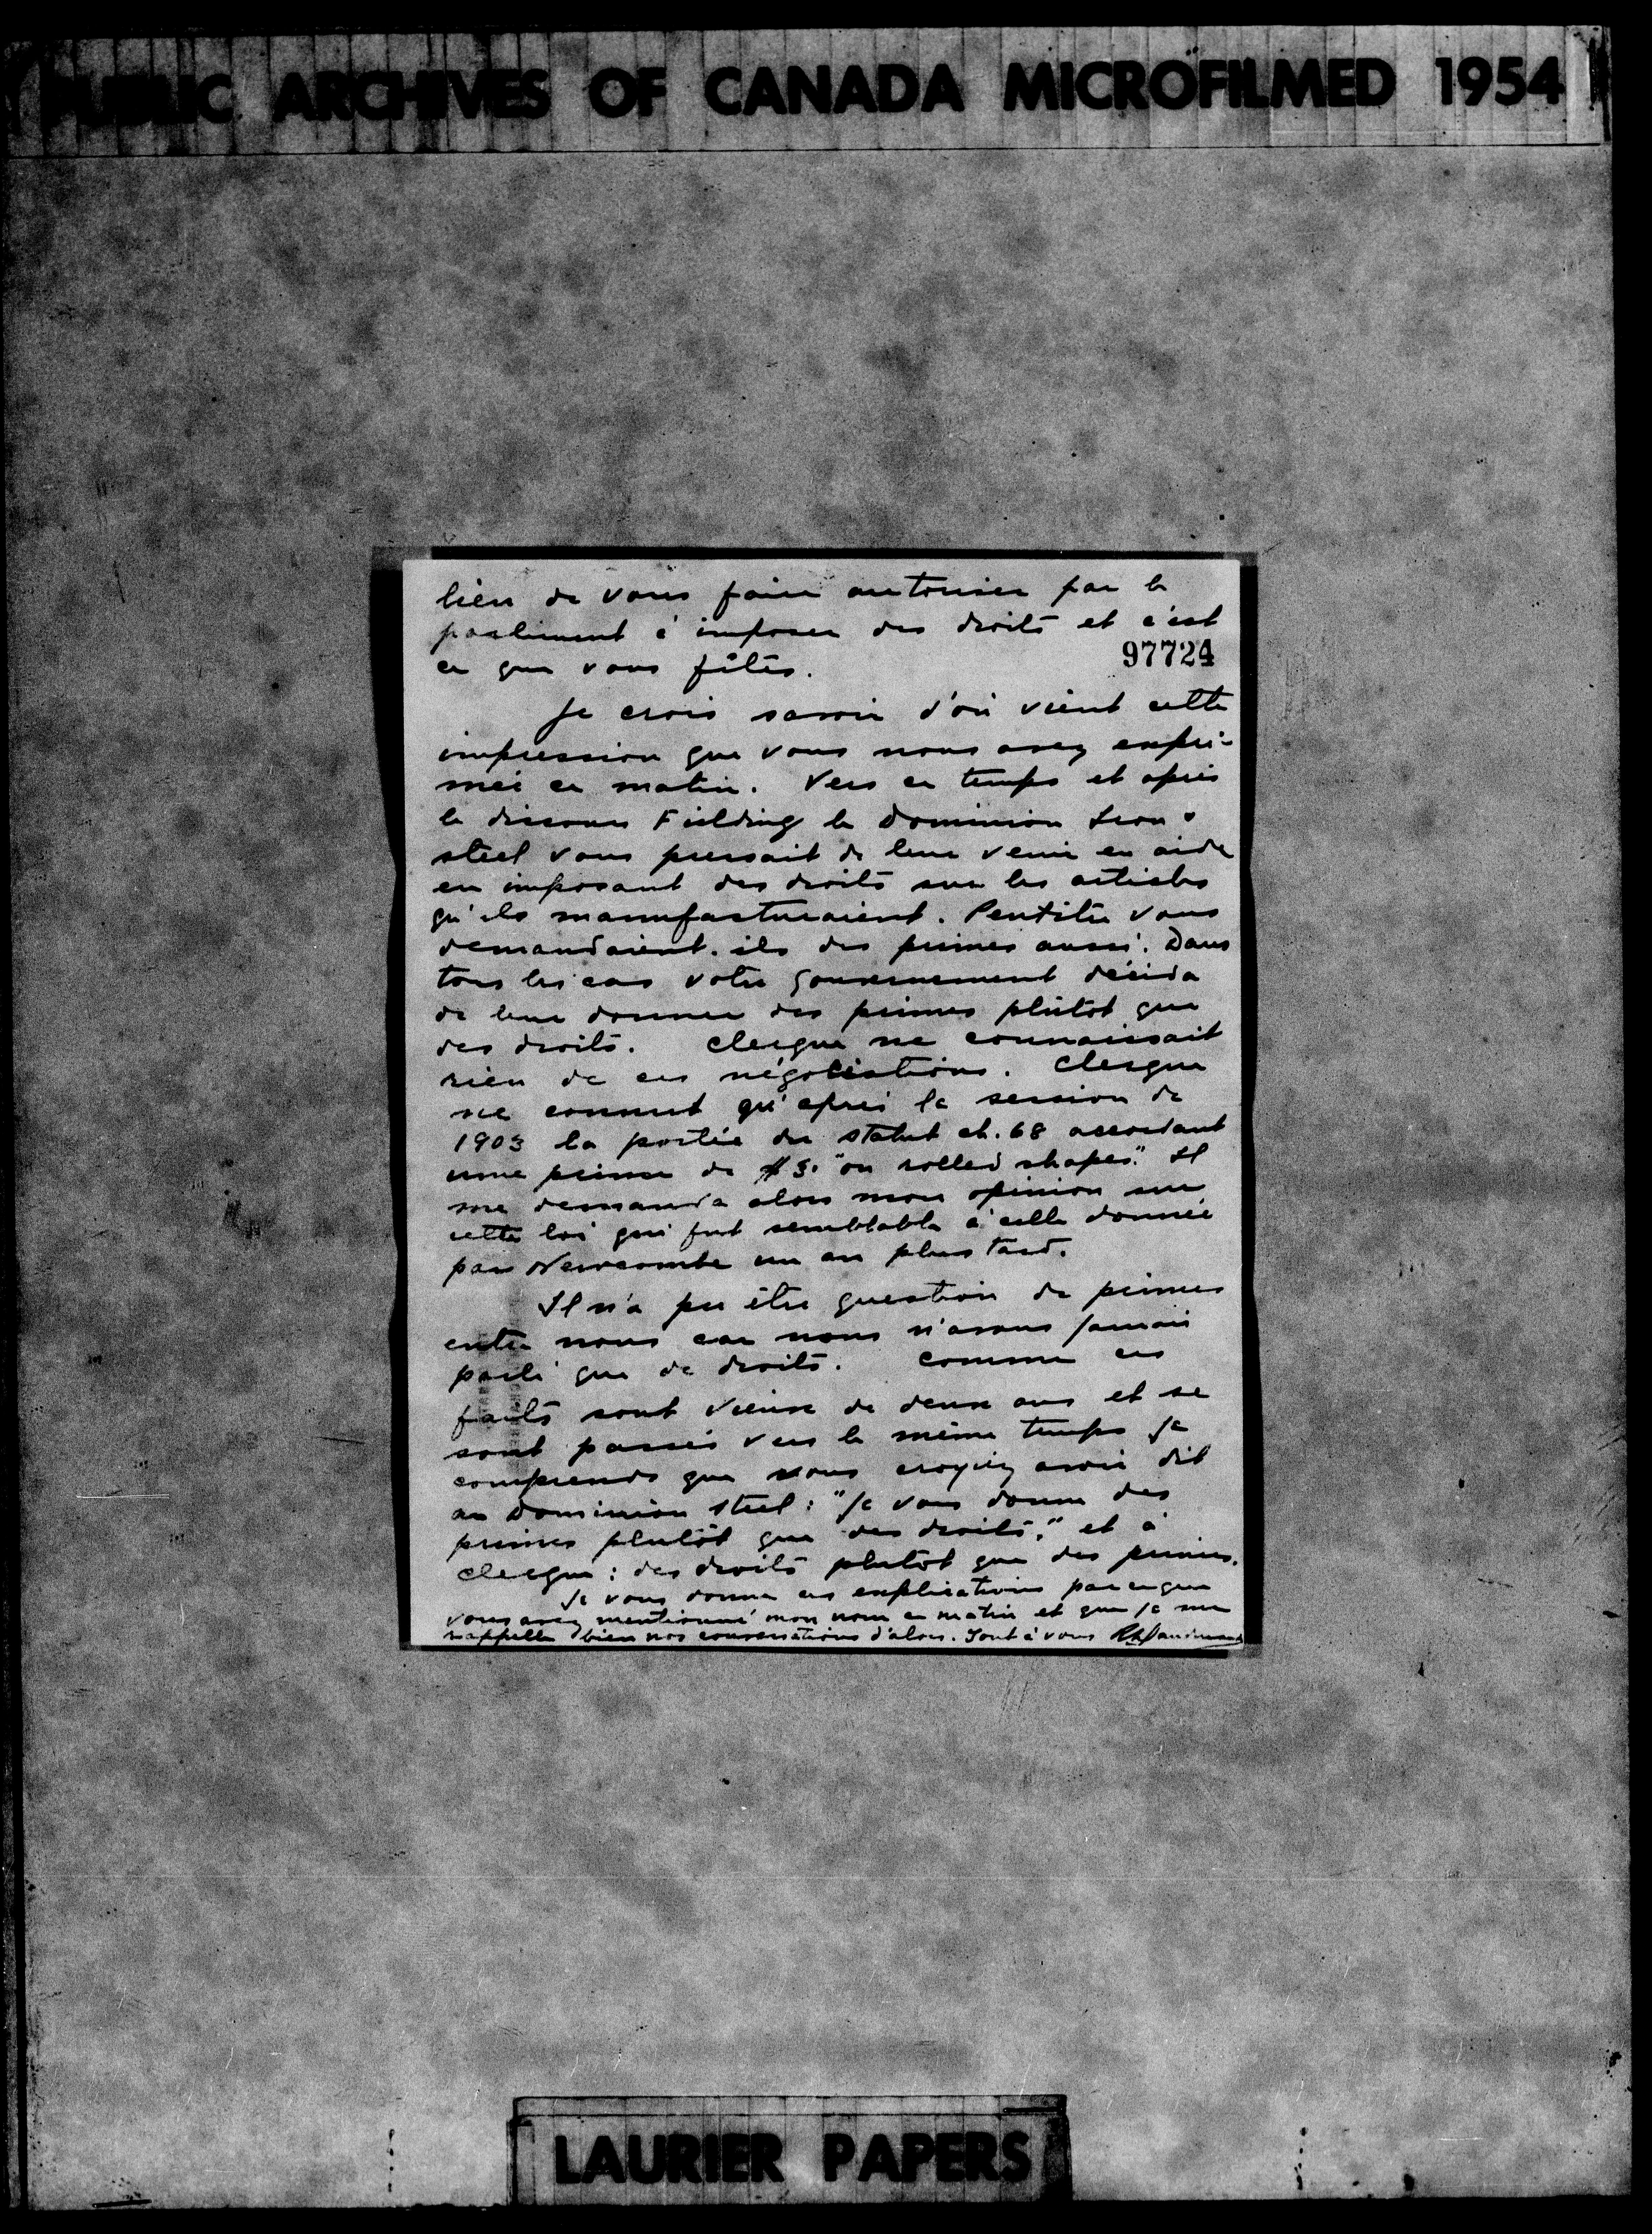 PUBLIC ARCHIVES OF CANADA MICROFILMED 1954
bien de vous faire autoriser par le
parliment à imposer des droits et c'est
97724
ce que vous fîtes.
Je crois savoir d'où vient cette
impression que vous nous avez expri-
meé ce matin. Vers ce temps et après
le discours Fielding le Dominion Iron &
steel vous pressait de leur venir en aide
en imposant des droits sur les articles
qu'ils manufacturaient. Peutêtre vous
demandaient-ils des primes aussi. Dans
tous les cas votre gouvernement décida
de leur donner des primes plûtot que
des droits. Clergue ne connaissait
rien de ces négociations. Clergue
ne connut qu'après la session de
1903 la portée du statut ch. 68 accordant
une prime de $3. "on rolled shapes." Il
me demanda alors mon opinion sur
cette loi qui fut semblable à celle donnée
par Newcombe un an plus tard.
Il n'a pu être question de primes
entre nous car nous n'avons jamais
parlé que de droits. Comme ces
faits sont vieux de deux ans et se
sont passés vers le même temps je
comprends que vous croyiez avoir dit
au Dominion Steel: "Je vous donne des
primes plutôt que des droits," et à
Clergue: des droits plutôt que des primes.
Je vous donne ces explications parceque
vous avez mentionné mon nom ce matin et que je me
rappelle bien nos conversations d'alors. Tout à vous R Dandurand
LAURIER PAPERS